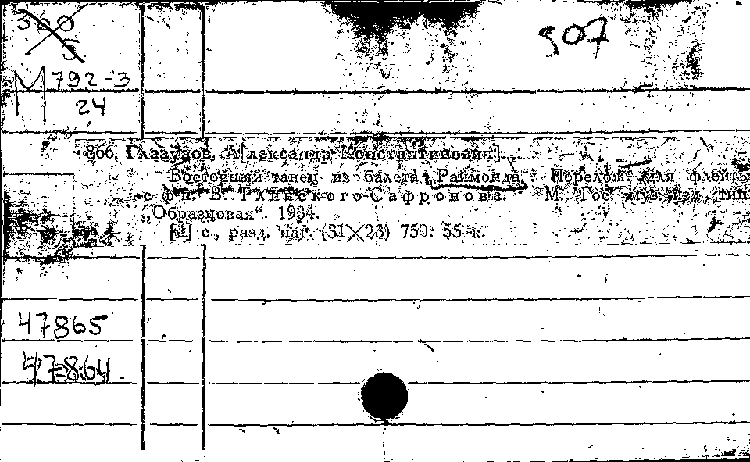 360
5
907
М 792-3
24
866. Глазунов, Александр Константинович].
Восточный танец из балета „Раймонда“. Перелож. для флейты
с фп. В. Глинского-Сафронова. М. Гос. муз. изд., тип.
„Образцовая“. 1934.
с., разд. паг. (31×23) 750: 55 к.
47865
47864.